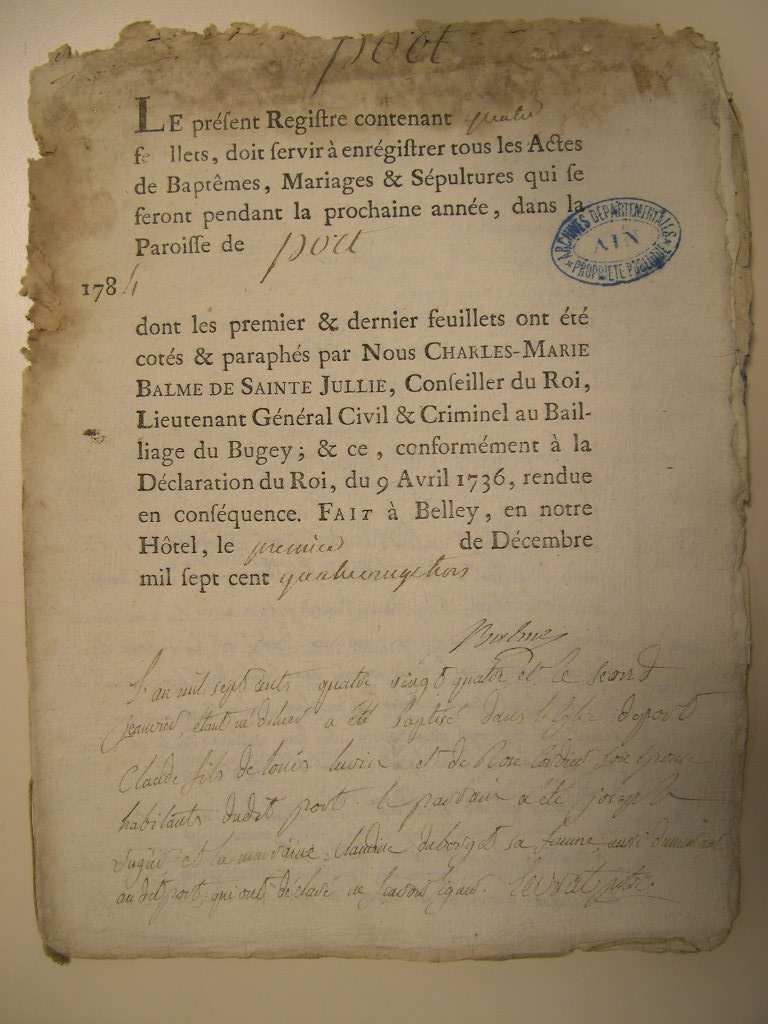 port
LE préſent Regiſtre contenant quatre
fe llets, doit ſervir à enrégiſtrer tous les Actes
de Baptêmes, Mariages & Sépultures qui ſe
feront pendant la prochaine année, dans la
Paroiſſe de port
1784
ARCHIVES DÉPARTEMENTALES
AIN
PROPRIÉTÉ PUBLIQUE
dont les premier & dernier feuillets ont été
cotés & paraphés par Nous CHARLES-MARIE
BALME DE SAINTE JULLIE, Conſeiller du Roi,
Lieutenant Général Civil & Criminel au Bail-
liage du Bugey; & ce, conformément à la
Déclaration du Roi, du 9 Avril 1736, rendue
en conſéquence. FAIT à Belley, en notre
Hôtel, le premier de Décembre
mil ſept cent quatrevingt trois
Balme
L'an mil sept cents quatre vingt quatre et le second
janvier, étant né a été baptisé dans l'Eglise de port
Claude fils de louis et de son épouse
habitants dudit port. le parrain a été joseph
et la marraine, Claudine sa femme, aussi
au dit port, qui ont déclaré ne savoir signer.